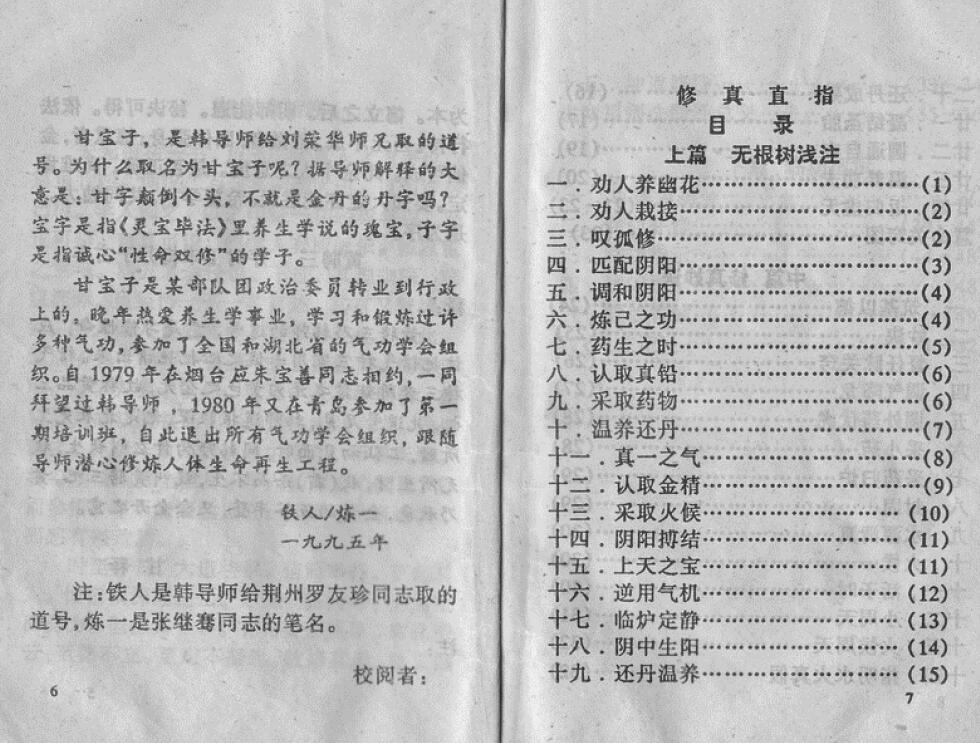 甘宝子，是韩导师给刘荣华师兄取的道
号。为什么取名为甘宝子呢？据导师解释的大
意是：甘字颠倒个头，不就是金丹的丹字吗？
宝字是指《灵宝毕法》里养生学说的瑰宝，子字
是指诚心“性命双修”的学子。
甘宝子是某部队团政治委员转业到行政
上的，晚年热爱养生学事业，学习和锻炼过许
多种气功，参加了全国和湖北省的气功学会组
织。自1979年在烟台应朱宝善同志相约，一同
拜望过韩导师，1980年又在青岛参加了第一
期培训班，自此退出所有气功学会组织，跟随
导师潜心修炼人体生命再生工程。
铁人/炼一
一九九五年
注：铁人是韩导师给荆州罗友珍同志取的
道号，炼一是张继骞同志的笔名。
校阅者：
6
修真直指
目录
上篇 无根树浅注
一．劝人养幽花……………………(1)
二．劝人栽接……………………(2)
三．叹孤修……………………(2)
四．匹配阴阳……………………(3)
五．调和阴阳……………………(4)
六．炼己之功……………………(4)
七．药生之时……………………(5)
八．认取真铅……………………(6)
九．采取药物……………………(6)
十．温养还丹……………………(7)
十一．真一之气……………………(8)
十二．认取金精……………………(9)
十三．采取火候……………………(10)
十四．阴阳搏结……………………(11)
十五．上天之宝……………………(11)
十六．逆用气机……………………(12)
十七．临炉定静……………………(13)
十八．阴中生阳……………………(14)
十九．还丹温养……………………(15)
7